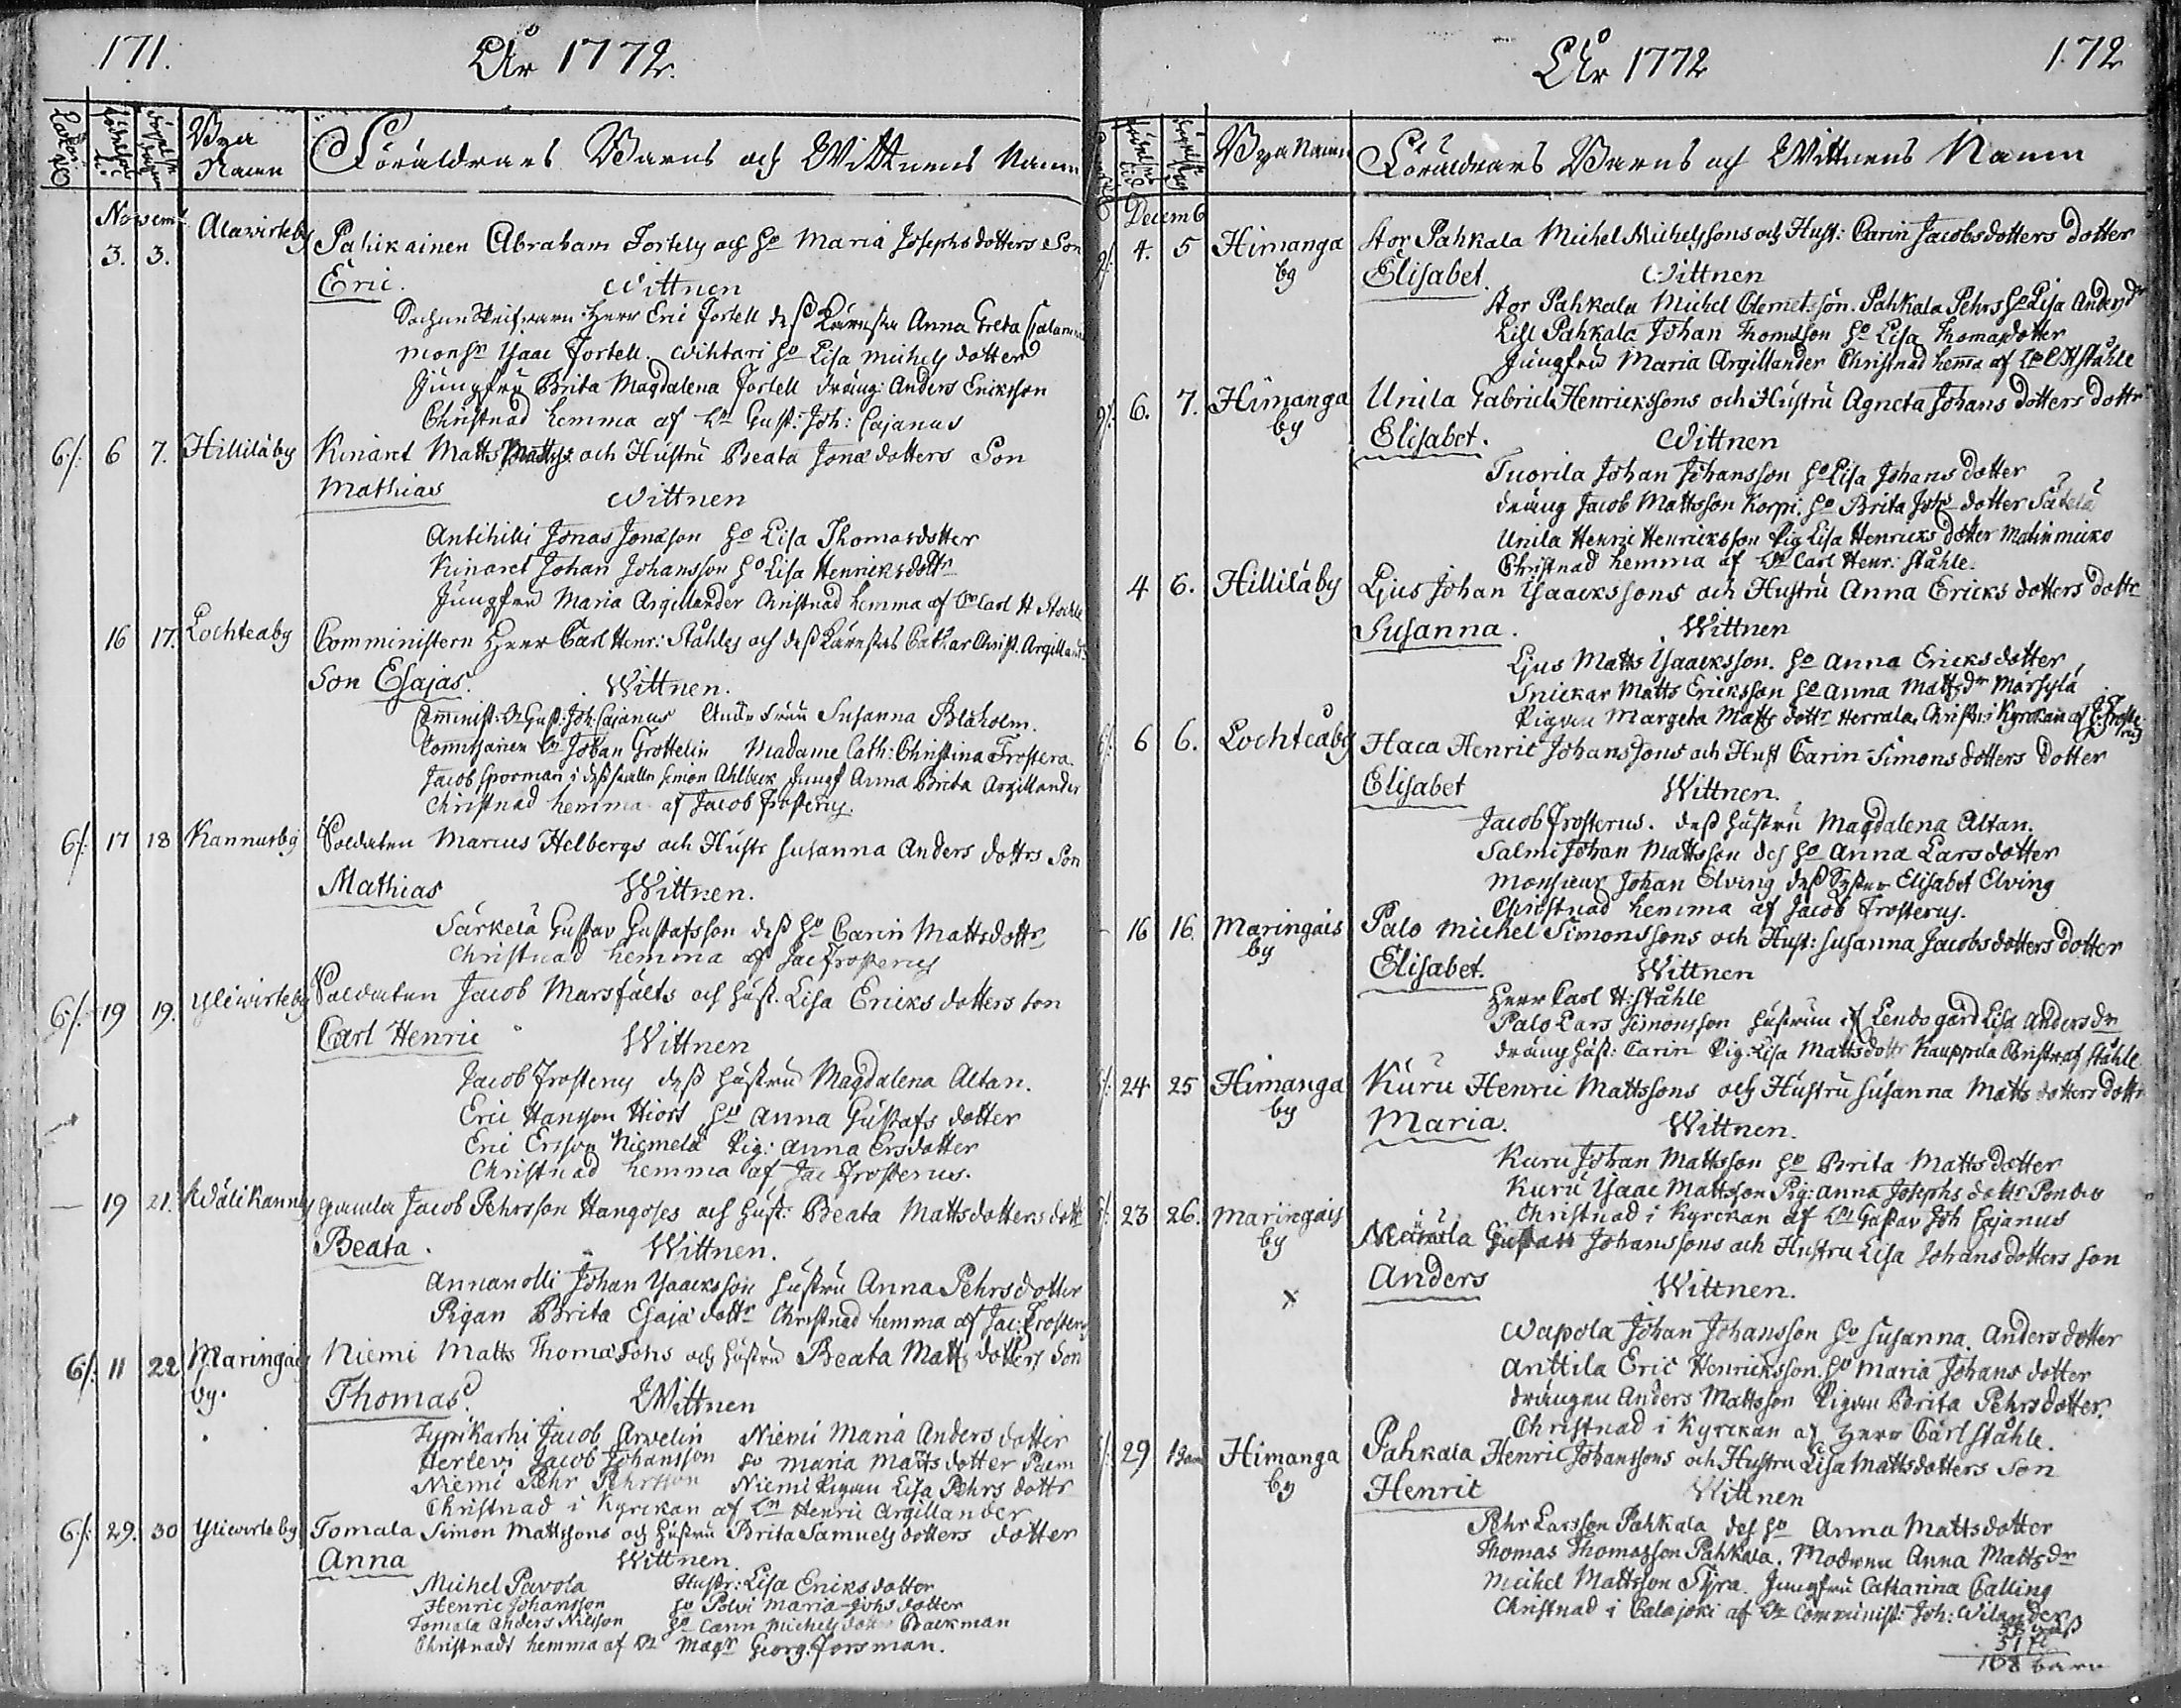 171.
År 1772.
Bya Namn
Föräldrars Barns och Wittnens Namn
Novemb
3. 3. Alawirteby Pahikainen Abraham Fortelz och ho Maria Josephsdotters Son
Eric. Wittnen
Herr Eric Fortell deß Käresta Anna Greta Calamnia
Monsr Isaac Fortell. Wihtari ho Lisa Michelsdotter
Jungfru Brita Magdalena Fortell dräng: Anders Eriksson
Christnad hemma af Hr Gust: Joh: Cajanus
6/: 6 7. Hilliläby Kinaret Matts Mattss: och Hustru Beata Jonædotters Son
Mathias Wittnen
Antihilli Jonas Jonæson ho Lisa Thomasdotter
Kinaret Johan Johansson ho Lisa Henricksdottr
Jungfru Maria Argillander Christnad hemma af Hr Carl H Ståhle
16 17. Lochteaby Comministern Herr Carl Henr: Ståhles och deß Kärestas Cathar Christ. Argilland:
Son Esajas. Wittnen.
Comminist: Hr Gust: Joh: Cajanus Ande Fruu Susanna Blåholm.
Hr Johan Grottelin Madame Cath: Christina Frostera.
Jacob Sporman i deß ställe Simon Ahlbeck Jungf Anna Brita Argillander
Christnad hemma af Jacob Frosterus.
6/: 17 18 Kannusby Soldaten Marcus Helbergs och Hustr Susanna Anders dottrs Son
Mathias Wittnen.
Särkelä Gustav Gustafsson deß ho Carin Mattsdottr
Christnad hemma af Jac Frosterus
6/: 19 19. Yliwirteby Soldaten Jacob Marsfälts och hust. Lisa Eriksdotters son
Carl Henric Wittnen
Jacob Frosterus deß hustru Magdalena Altan.
Eric Hansson Hiort ho Anna Gustafs dotter
Eric Ersson Niemelä Pig: Anna Ersdotter
Christnad hemma af Jac Frosterus.
— 19 21. Wälikannus gamla Jacob Pehrsson Hangoses och hust: Beata Mattsdotters dott
Beata. Wittnen.
Annanolli Johan Isaacksson hustru Anna Pehrsdotter
Pigan Brita Esajædottr Christnad hemma af Jac: Frosterus
6/: 11 22 Maringais by. Niemi Matts Thomæsons och hustru Beata Mattsdotters Son
Thomas. Wittnen
Typikarhi Jacob Arwelin Niemi Maria Anders dotter
Herlevi Jacob Johansson ho Maria Mattsdotter Palm
Niemi Pehr Pehrsson Niemi Pigan Lisa Pehrs dottr
Christnad i Kyrckan af Hr Henric Argillander
6/: 29. 30 Yliwirteby Tomala Simon Mattssons och hustru Brita Samuelsdotters dotter
Anna Wittnen.
Michel Pavola Hustr: Lisa Eriksdotter
Henric Johansson ho Polvi Maria Johsdotter
Tomala Anders Nilsson ho Carin Michelsdotter Brackman
Christnadt hemma af Hr Magr Georg: Forsman.
År 1772
172
Bya Namn
Föräldrars Barns och Wittnens Namn
Decemb
4. 5 Himanga by Stor Pahkala Michel Michelssons och Hust: Carin Jacobsdotters dotter
Elisabet. Wittnen
Stor Pahkala Michel Clemetsson. Pahkala Pehrs ho Lisa Andersdr
Lill Pahkala Johan Thomasson ho Lisa Thomasdotter
Jungfru Maria Argillander Christnad hema af Hr C H Ståhle
6. 7. Himanga by Unila Gabriel Henrickssons och Hustru Agneta Johansdotters dottr
Elisabet. Wittnen
Tuorila Johan Johansson ho Lisa Johansdotter
dräng Jacob Mattsson Korpi. ho Brita Johsdotter Säkelä
Unila Henric Henricksson Pig Lisa Henricksdotter Matinmicko
Christnad hemma af Hr Carl Henr: Ståhle.
4 6. Hilliläby Ljus Johan Isaackssons och Hustru Anna Ericksdotters dottr
Susanna. Wittnen
Ljus Matts Isaacksson. ho Anna Ericksdotter
Snickar Matts Ericksson ho Anna Mattsdr Märsylä
Pigan Margeta Mattsdottr Herrala, Christn: i Kyrckan af Jac: Frosterus
6 6. Lochteåby Haca Henric Johanssons och Hust Carin Simonsdotters dotter
Elisabet Wittnen.
Jacob Frosterus. deß hustru Magdalena Altan.
Salmi Johan Mattsson deß ho Anna Larsdotter
Monsieur Johan Elving deß Syster Elisabet Elving
Christnad hemma af Jacob Frosterus.
16 16. Maringais by Palo Michel Simonssons och Hust: Susanna Jacobsdotters dotter
Elisabet. Wittnen
Herr Carl H: Ståhle
Palo Lars Simonsson Lendsgård Lisa Andersdr
dräng hust: Carin Pig: Lisa Mattsdottr Kauppila Christn: af Ståhle
24 25 Himanga by Kuru Henric Mattssons och Hustru Susanna Mattsdotters dottr
Maria. Wittnen.
Kuru Johan Mattsson ho Brita Mattsdotter
Kuru Isaac Mattsson Pig: Anna Josephsdottr Pondes
Christnad i Kyrckan af Hr Gustav Joh Cajanus
23 26. Maringais by Gustav Johanssons och Hustru Lisa Johansdotters son
Anders Wittnen.
x Wapola Johan Johansson ho Susanna Andersdotter
Anttila Eric Henricksson. ho Maria Johansdotter
drängen Anders Mattsson Pigan Brita Pehrsdotter.
Christnad i Kyrckan af Herr Carl Ståhle.
29 Himanga by Pahkala Henric Johanssons och Hustru Lisa Mattsdotters Son
Henric Wittnen
Pehr Larsson Pahkala deß ho Anna Mattsdotter
Thomas Thomasson Pahkala. Modren Anna Mattsdr
Michel Mattsson Tyra. Jungfru Catharina Calling
Christnad i Calajoki af Hr Comminist: Joh: Wilander
108 barn